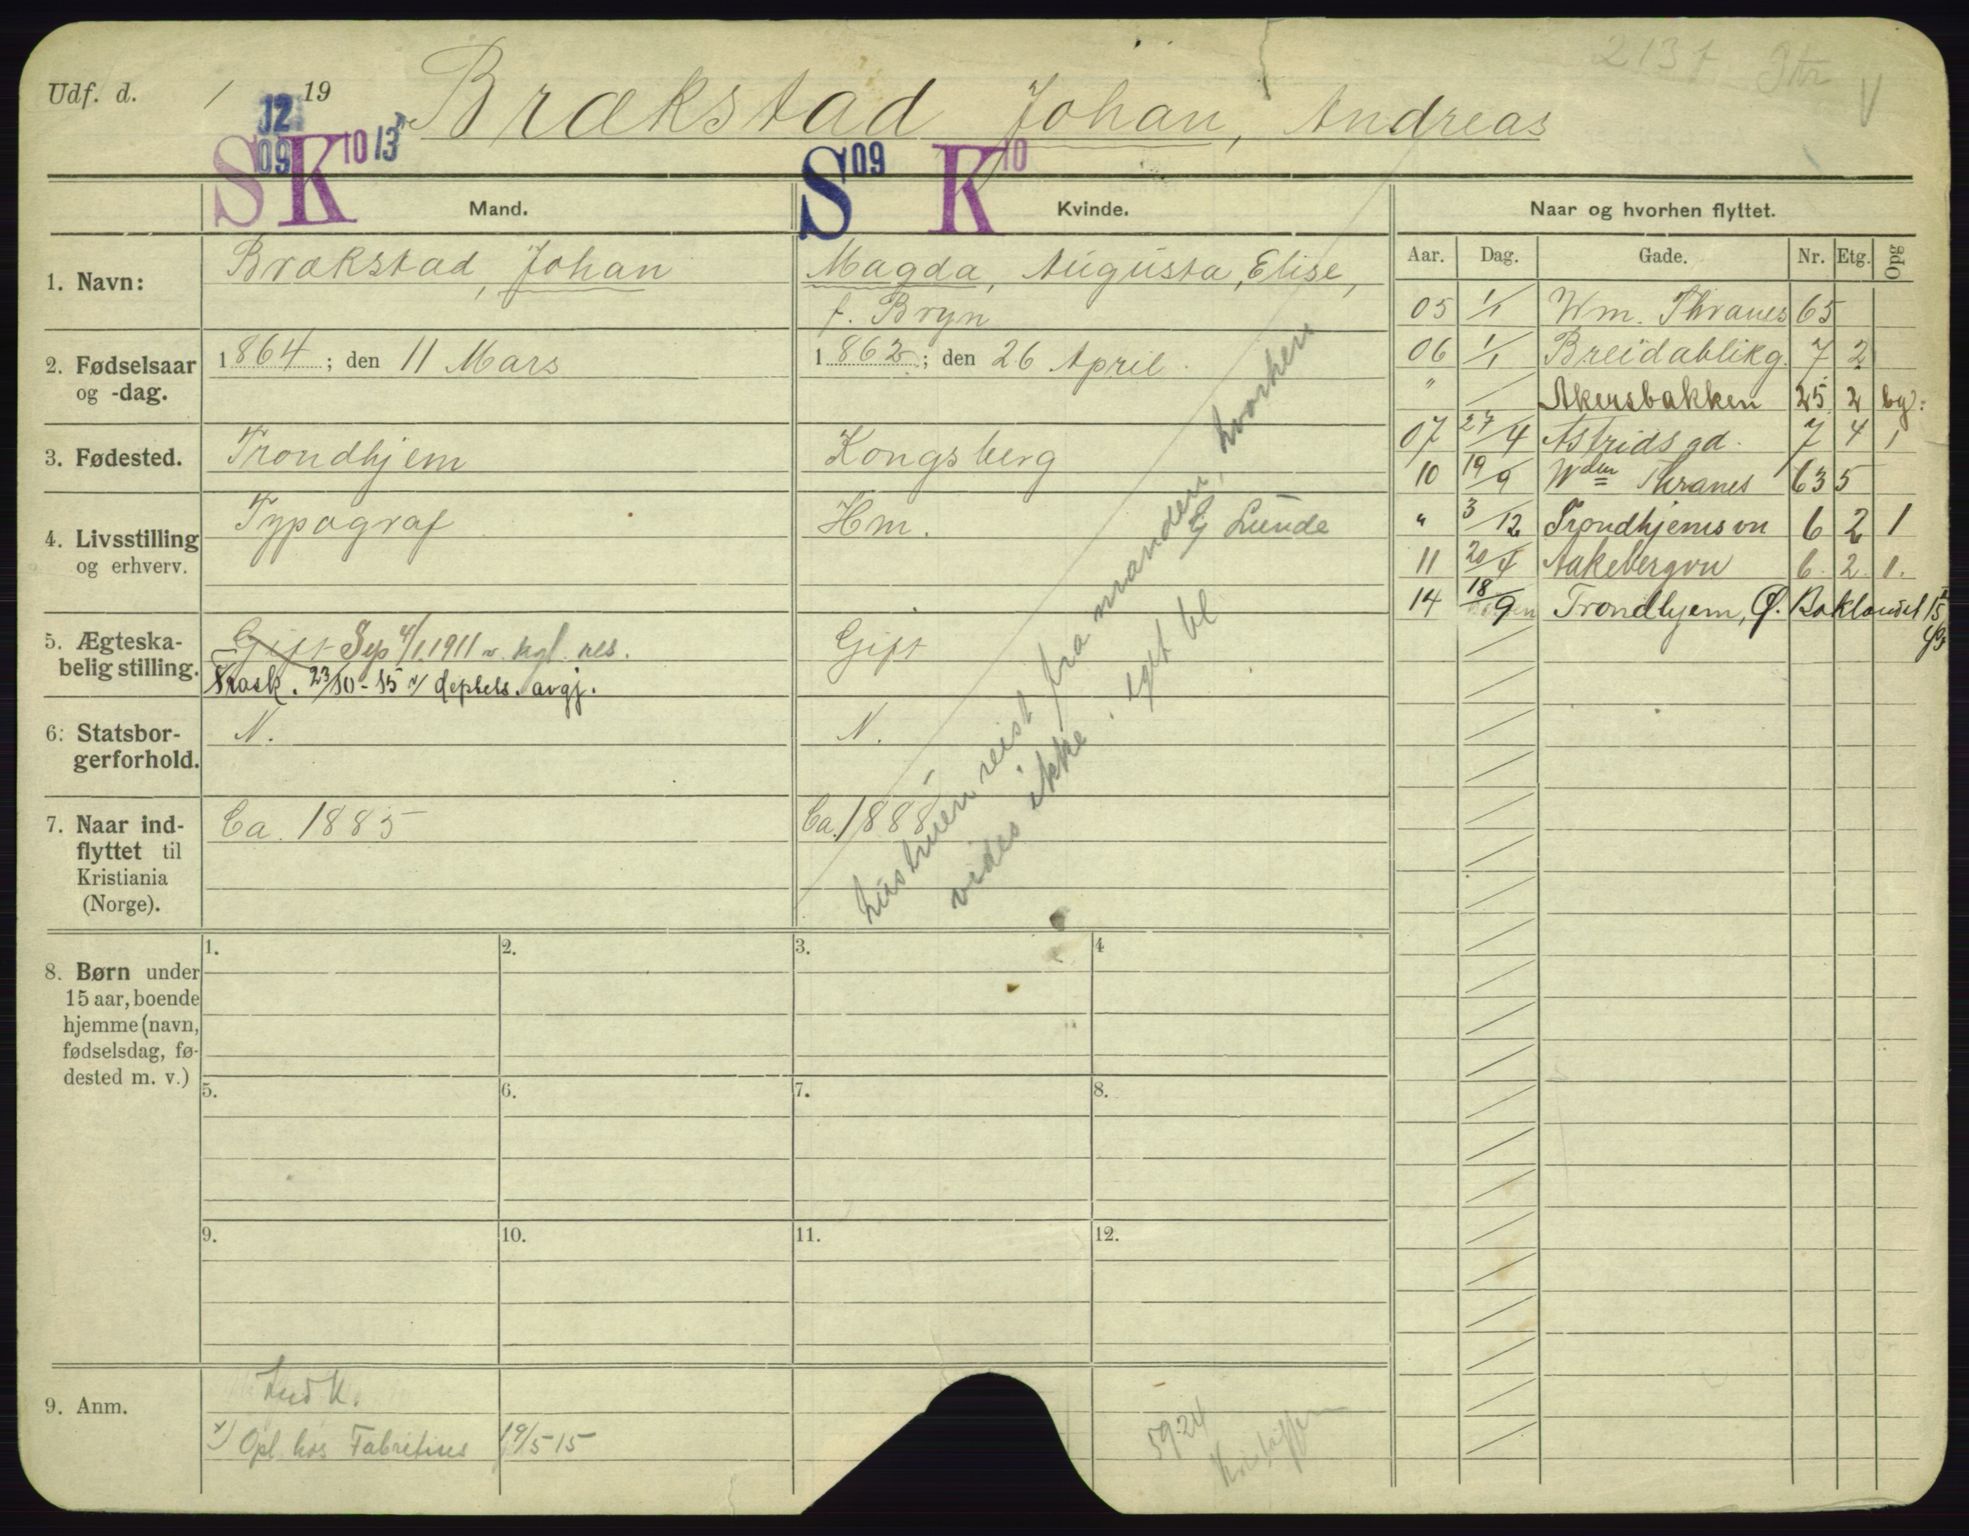 2131
Udf. d. 1 19 Brækstad Johan, Andreas
12 09 S K 10 13 S 09 K 10
Mand. Kvinde. Naar og hvorhen flyttet.
Aar. Dag. Gade. Nr. Etg. Opg
1. Navn: Brækstad, Johan Magda, Augusta, Elise,
f. Bryn
2. Fødselsaar 1864; den 11 Mars 1862; den 26 April
og -dag.
3. Fødested. Trondhjem Kongsberg
4. Livsstilling Typograf Hm. G Lunde
og erhverv.
5. Ægteska- Gift Sep 4/1 1911 v. kgl. res. Gift
belig stilling. Frask. 23/10-15 v/ deptets. avgj.
6. Statsbor- N. N.
gerforhold.
7. Naar ind- Ca. 1885 Ca. 1888
flyttet til
Kristiania
(Norge).
hustruen reist fra manden, hvorhen
vides ikke
05 1/1 Wm. Thranes 65
06 1/1 Breidablikg. 7 2
" Akersbakken 25 2 bg:
07 27/4 Astrids gd. 7 4 1
10 19/9 Wdm Thranes 63 5
" 3/12 Trondhjemsvn 6 2 1
11 20/4 Aakebergvn 6. 2. 1.
14 18/9 Trondhjem, Ø. Baklandet 15
8. Børn under
15 aar, boende
hjemme (navn,
fødselsdag, fø-
dested m. v.)
1. 2. 3. 4
5. 6. 7. 8.
9. 10. 11. 12.
9. Anm.
Opl. hos Fabritius 19/5-15
5924